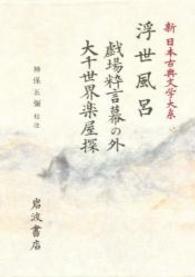 新日本古典文学大系
浮世風呂
戯場粋言幕の外
大千世界楽屋探
神保五彌 校注
岩波書店